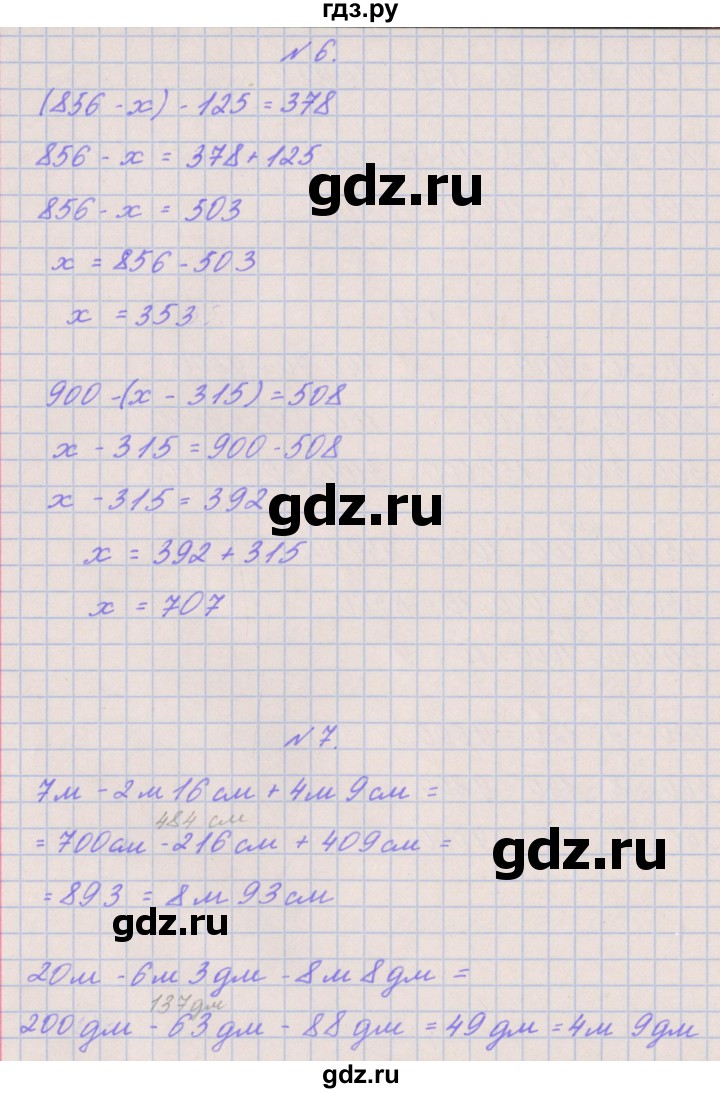 гдз.ру
N 6.
(856 - x) - 125 = 378
856 - x = 378 + 125
gdz.ru
856 - x = 503
x = 856 - 503
x = 353
900 - (x - 315) = 508
x - 315 = 900 - 508
x - 315 = 392
gdz.ru
x = 392 + 315
x = 707
N 7.
7м - 2м 16см + 4м 9см =
484 см
= 700см - 216см + 409см =
gdz.ru
= 893 = 8м 93см
gdz.ru
20м - 6м 3дм - 8м 8дм =
137дм
200дм - 63дм - 88дм = 49дм = 4м 9дм
gdz.ru